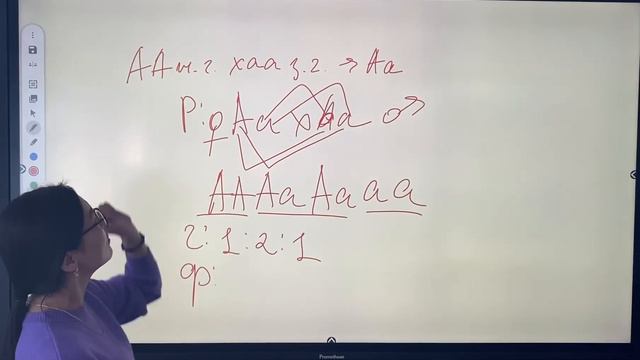 AA ч.г. x aa з.г. → Aa
P: ♀ Aa x Aa ♂
AA Aa Aa aa
г: 1 : 2 : 1
ф:
Promethean